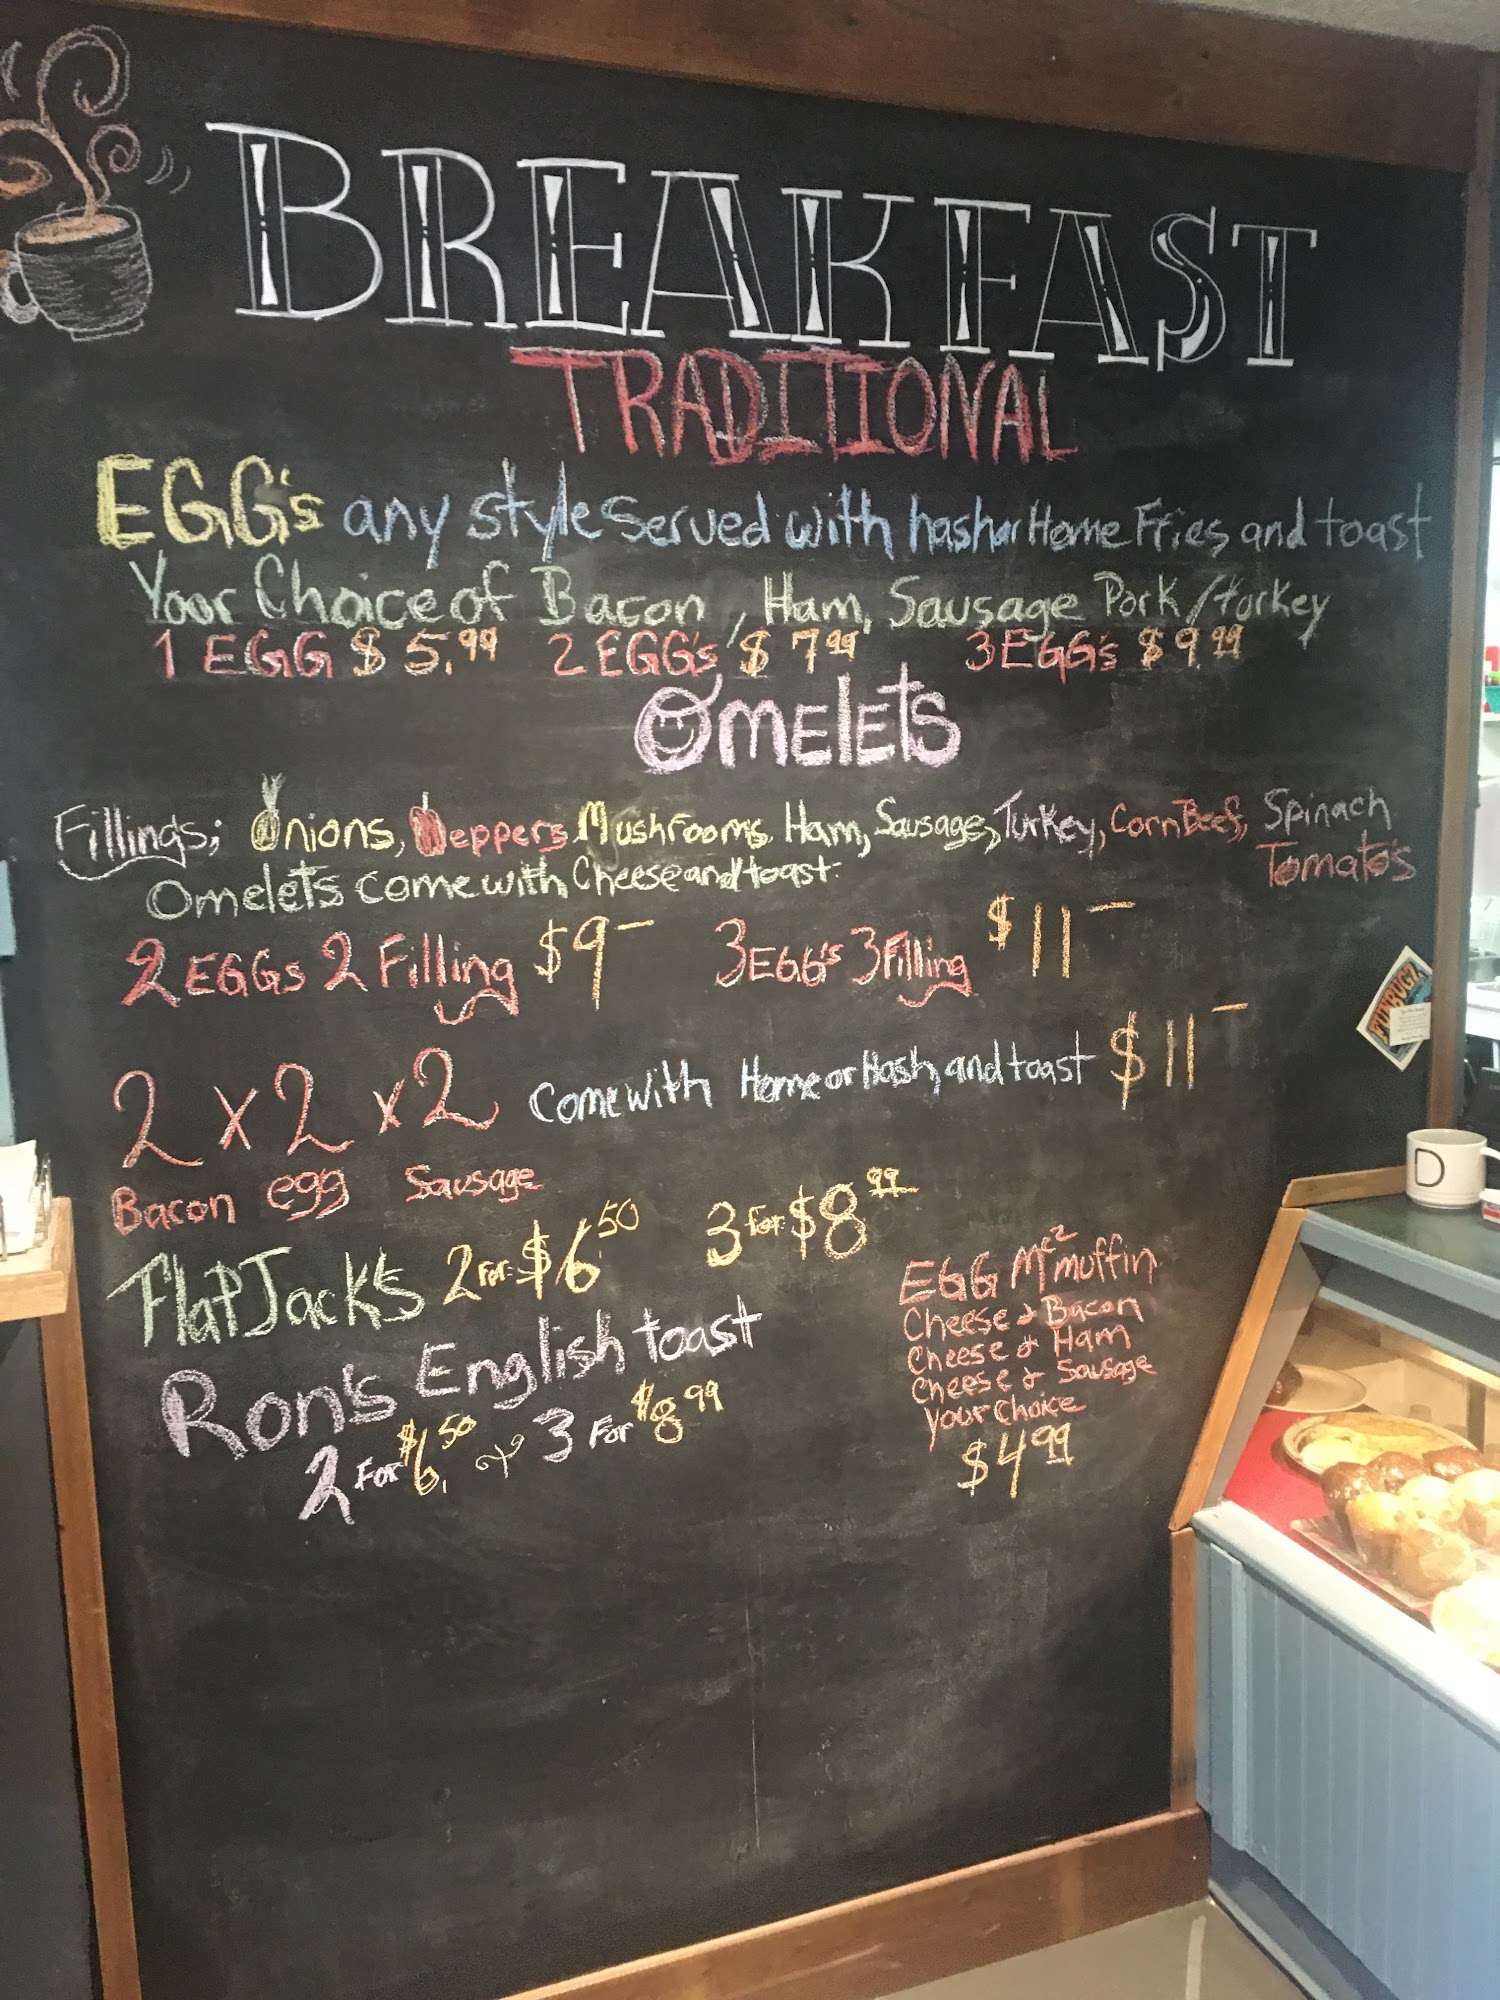 BREAKFAST
TRADITIONAL
EGG's any style served with hash or Home Fries and toast
Your Choice of Bacon, Ham, Sausage Pork/turkey
1 EGG $5.99 2 EGG's $7.99 3 EGG's $9.99
Omelets
Fillings; Onions, Peppers, Mushrooms, Ham, Sausage, Turkey, Corn Beef, Spinach
Tomato's
Omelets come with Cheese and toast.
2 EGGs 2 Filling $9- 3 EGG's 3 Filling $11-
2 x 2 x 2 Come with Home or Hash, and toast $11-
Bacon egg Sausage
FlapJack's 2 For $6.50 3 For $8.99
Ron's English toast
2 For $6.50 3 For $8.99
EGG Mc2 muffin
Cheese & Bacon
Cheese & Ham
Cheese & Sausage
Your Choice
$4.99
D